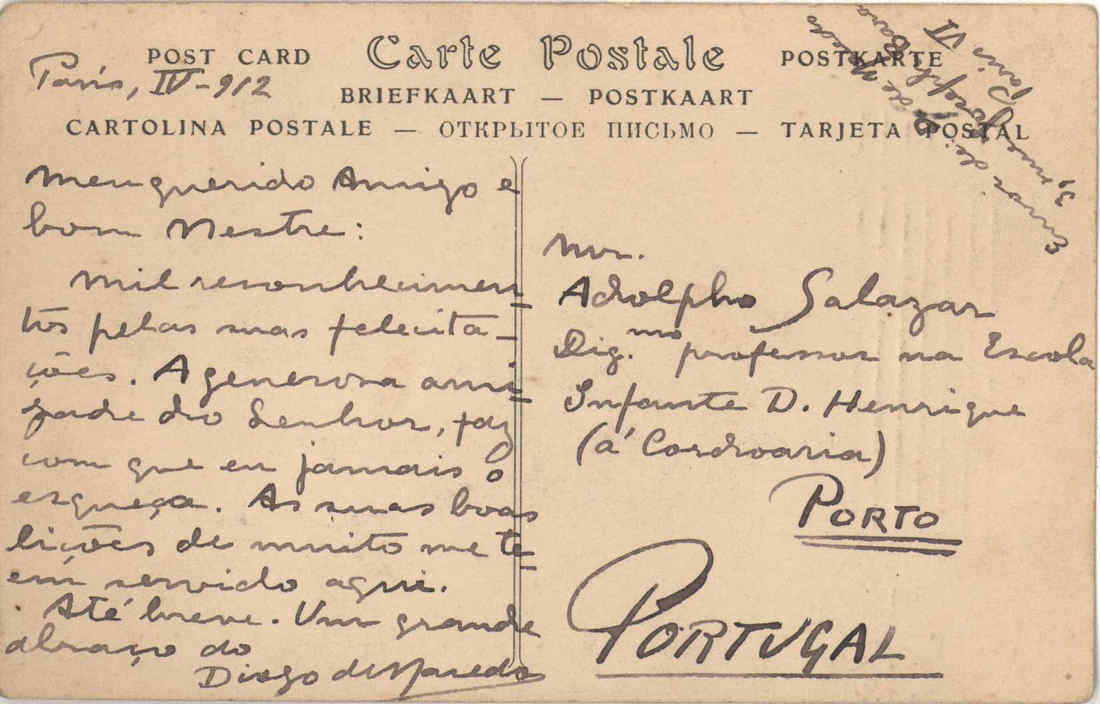 POST CARD Carte Postale POSTKARTE
BRIEFKAART — POSTKAART
CARTOLINA POSTALE — ОТКРЫТОЕ ПИСЬМО — TARJETA POSTAL
Paris, IV-912
Meu querido Amigo e
bom Mestre:
Mil reconhecimen-
tos pelas suas felicita-
ções. A generosa ami-
zade do Senhor, faz
com que eu jamais o
esqueça. As suas boas
lições de muito me te-
em servido aqui.
Até breve. Um grande
abraço do
Diogo de Macedo
Mr.
Adolpho Salazar
Dig.mo professor na Escola
Infante D. Henrique
(á Cordoaria)
PORTO
PORTUGAL
de Macedo
3, rue Joseph Bara
Paris VI